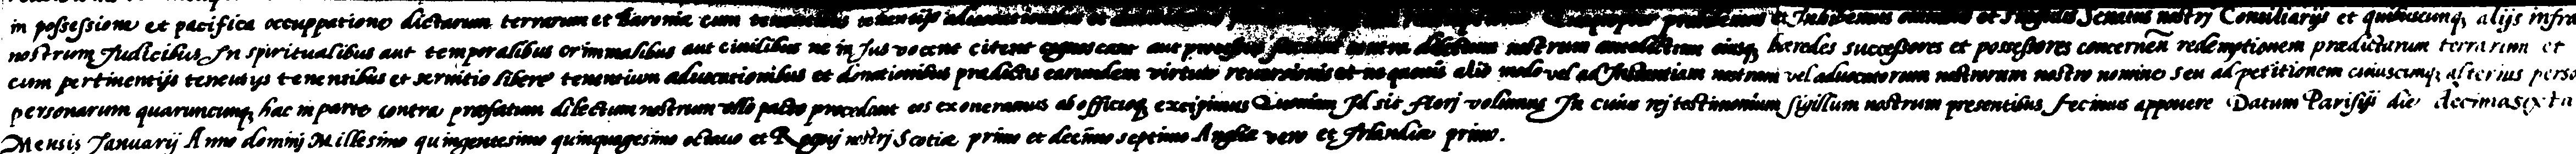 in possessione et pacifica occuppatione dictarum terrarum et Baroniæ cum et Inhibemus omnibus et singulis Senatus nostrj Consiliarijs et quibuscunq alijs infra
nostrum Judicibus In spiritualibus aut temporalibus criminalibus aut ciuilibus ne in Jus vocent citent cognoscant aut processus faciant contra dilectum nostrum antedictum eiusq hæredes successores et possessores concernen̄ redemptionem prædictarum terrarum et
cum pertinentijs tenentijs tenentibus et seruitio libere tenentium aduocationibus et donationibus prædictis earundem virtute reuersionis et ne quouis alio modo vel ad Instantiam nostram vel aduocatorum nostrorum nostro nomine seu ad petitionem cuiuscunq alterius perso
personarum quaruncunq hac in parte contra præfatum dilectum nostrum ullo pacto procedant eos exoneramus ab officioq excipimus Quoniam Id sic fierj volumus In cuius rej testimonium sigillum nostrum presentibus fecimus apponere Datum Parisijs die decimasexta
Mensis Januarij Anno dominj Millesimo quingentesimo quinquagesimo octauo et Regnj nostrj Scotiæ primo et decimo septimo Angliæ vero et Irlandiæ primo.